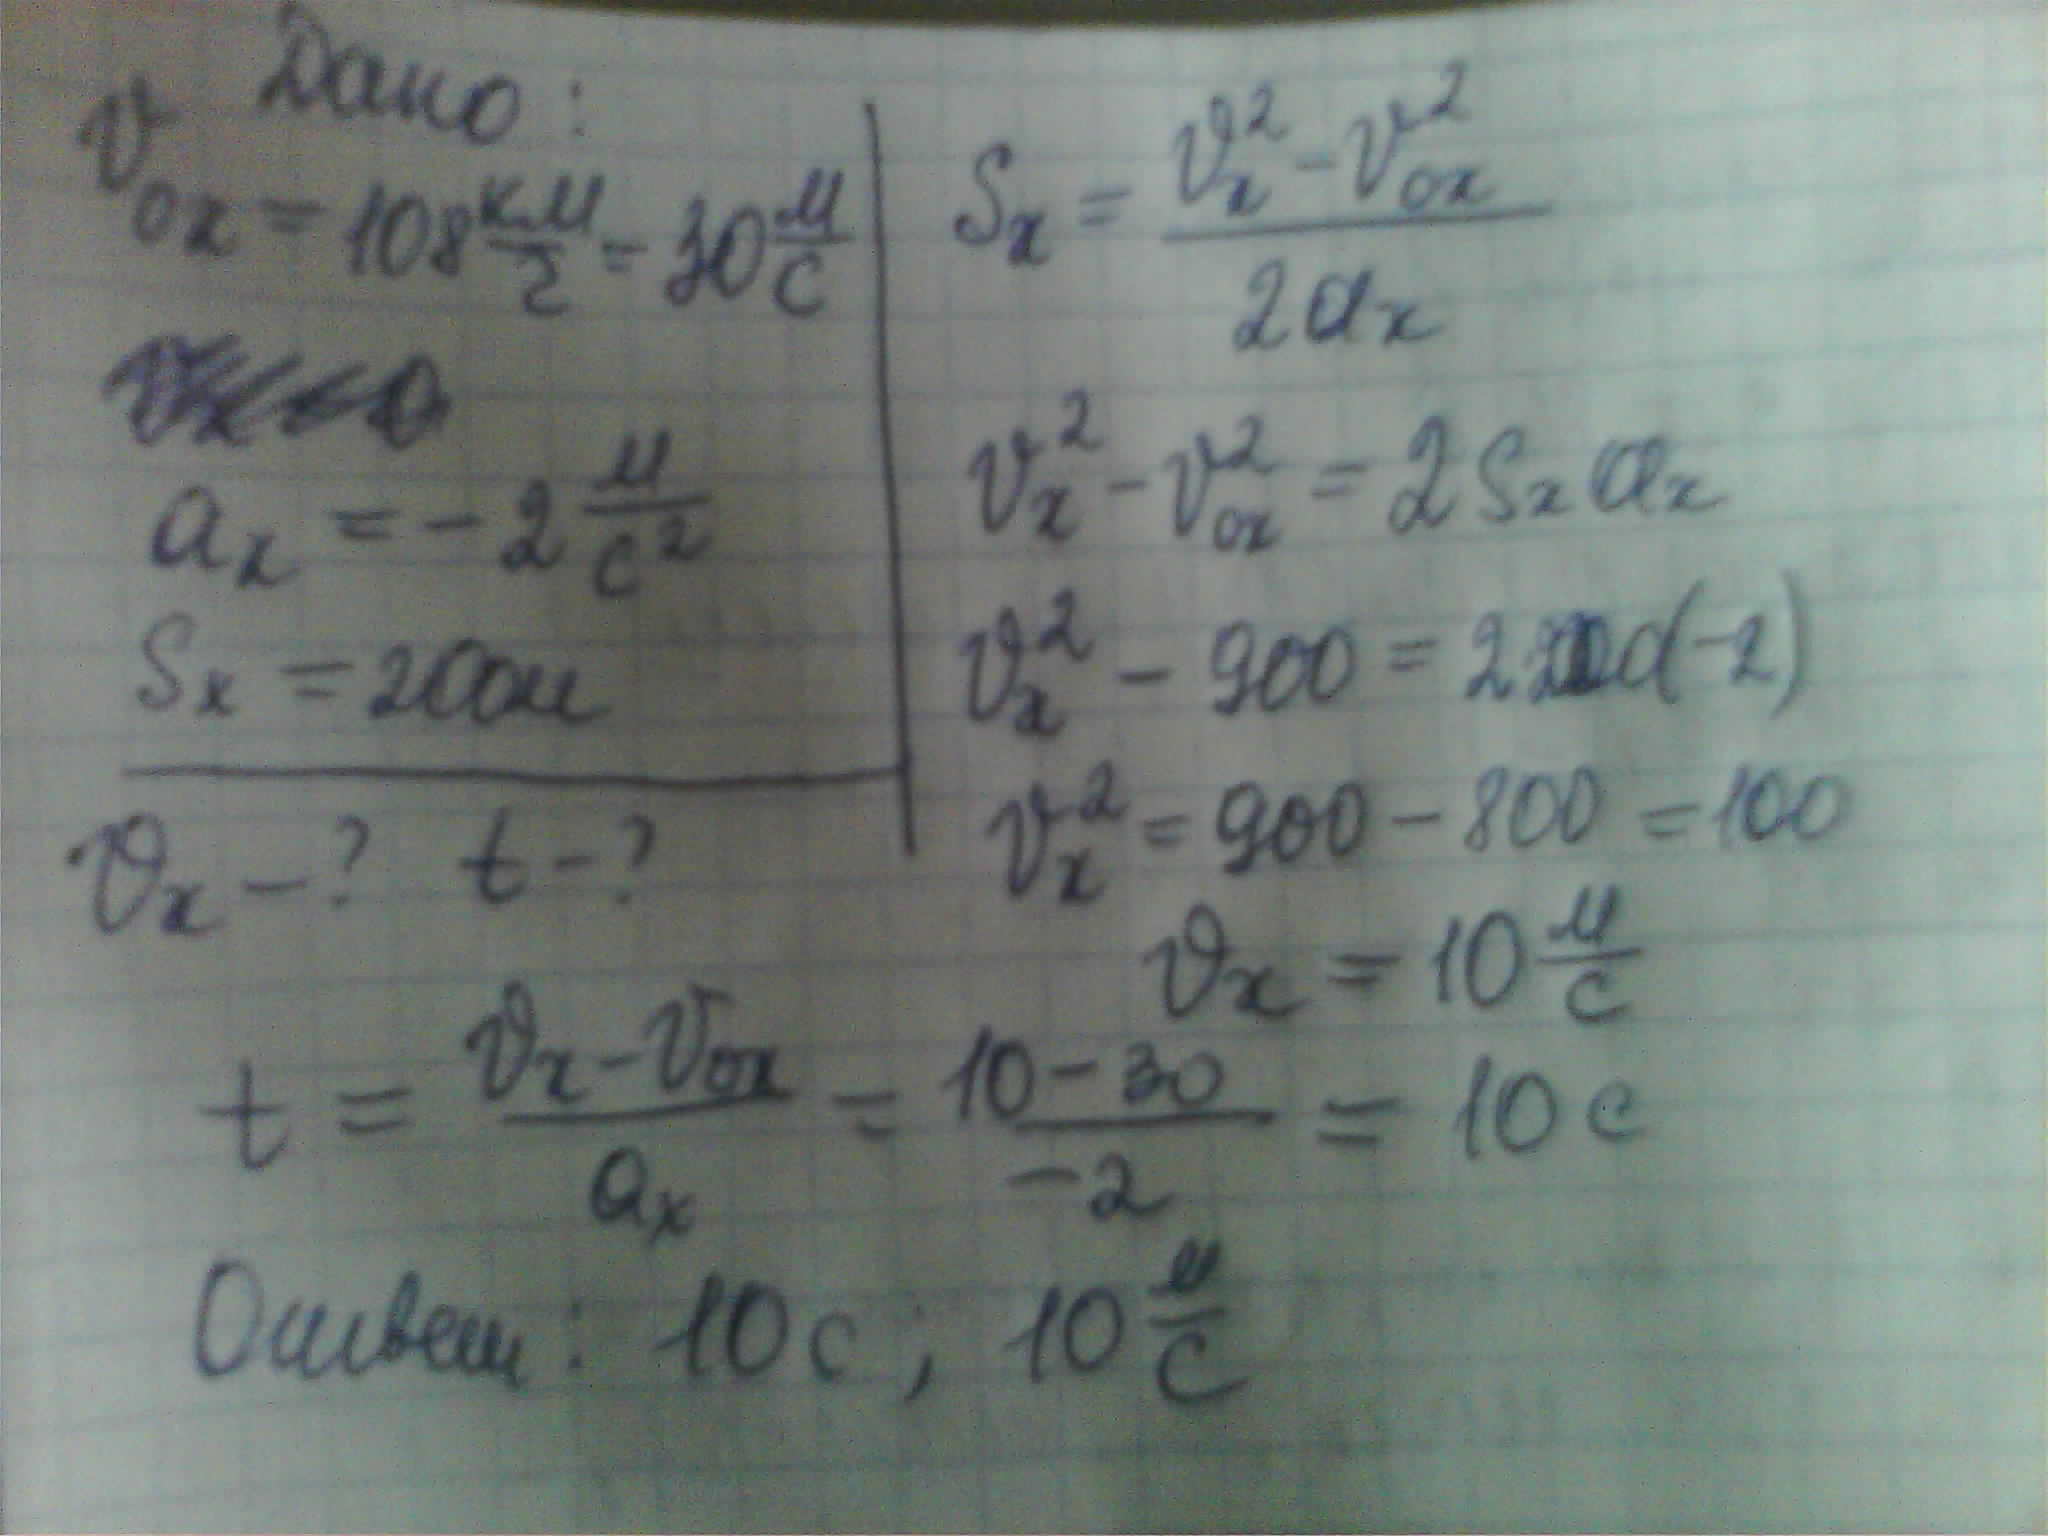 Дано:
v₀ₓ = 108 км/г = 30 м/с
aₓ = -2 м/с²
Sₓ = 200м
vₓ - ? t - ?
Sₓ = (vₓ² - v₀ₓ²)/(2aₓ)
vₓ² - v₀ₓ² = 2Sₓaₓ
vₓ² - 900 = 2 · 200(-2)
vₓ² = 900 - 800 = 100
vₓ = 10 м/с
t = (vₓ - v₀ₓ)/aₓ = (10 - 30)/(-2) = 10 с
Ответ: 10 с; 10 м/с